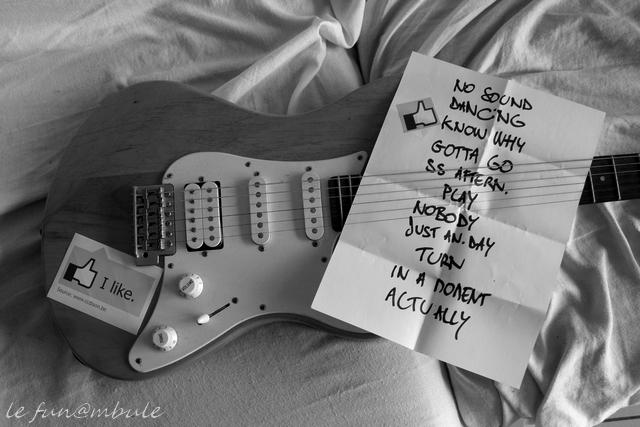 NO SOUND
DANCING
KNOW WHY
GOTTA GO
SS AFTERN.
PLAY
NOBODY
JUST AN. DAY
TURN
IN A DOMENT
ACTUALLY
I like.
VOLUME
le fun@mbule